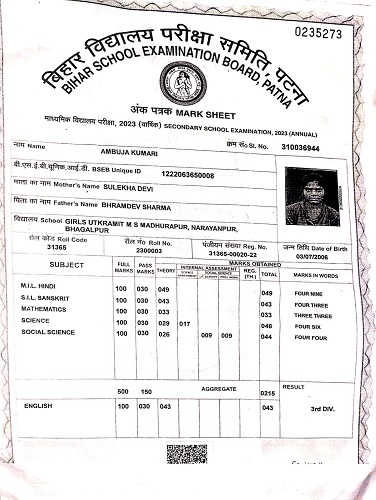 0235273
बिहार विद्यालय परीक्षा समिति, पटना
BIHAR SCHOOL EXAMINATION BOARD, PATNA
अंक पत्रक MARK SHEET
माध्यमिक विद्यालय परीक्षा, 2023 (वार्षिक) SECONDARY SCHOOL EXAMINATION, 2023 (ANNUAL)
नाम Name AMBUJA KUMARI क्रम सं० Sl. No. 310036944
बी.एस.ई.बी.यूनिक.आई.डी. BSEB Unique ID 1222063650008
माता का नाम Mother's Name SULEKHA DEVI
पिता का नाम Father's Name BHRAMDEV SHARMA
विद्यालय School GIRLS UTKRAMIT M S MADHURAPUR, NARAYANPUR,
BHAGALPUR
रौल कोड Roll Code रौल नं० Roll No. पंजीयन संख्या Reg. No. जन्म तिथि Date of Birth
31365 2300003 31365-00020-22 03/07/2006
SUBJECT FULL MARKS PASS MARKS THEORY INTERNAL ASSESSMENT REG. (TH.) TOTAL MARKS IN WORDS
MARKS OBTAINED
M.I.L. HINDI 100 030 049 049 FOUR NINE
S.I.L. SANSKRIT 100 030 043 043 FOUR THREE
MATHEMATICS 100 030 033 033 THREE THREE
SCIENCE 100 030 029 017 046 FOUR SIX
SOCIAL SCIENCE 100 030 026 009 009 044 FOUR FOUR
500 150 AGGREGATE 0215 RESULT
ENGLISH 100 030 043 043 3rd DIV.